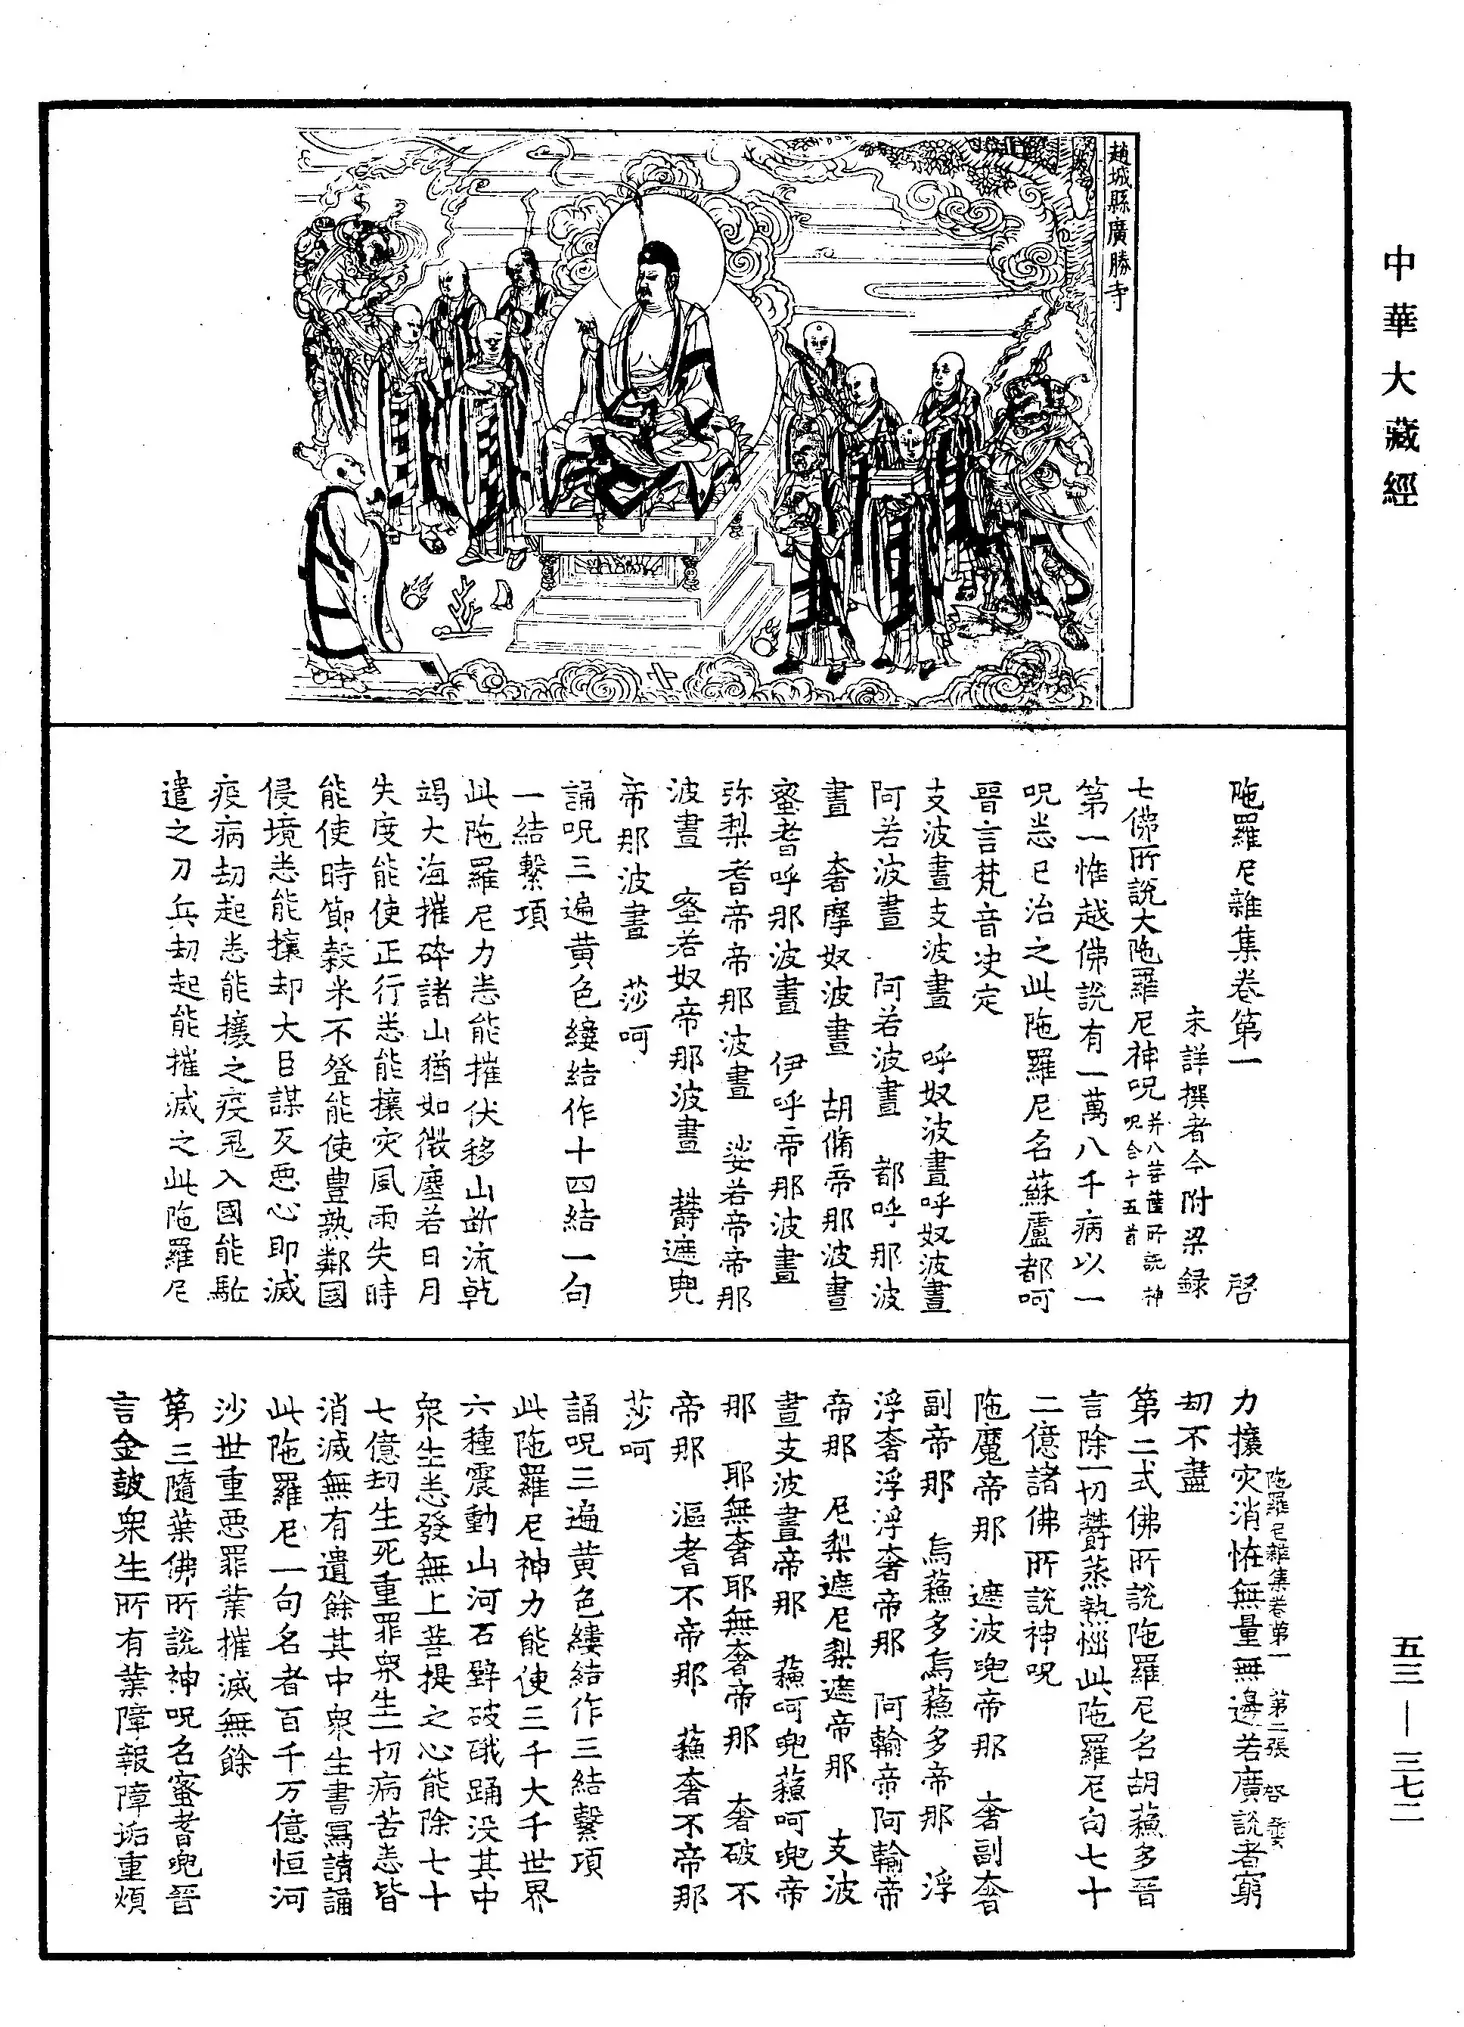 中華大藏經
趙城縣廣勝寺
陁羅尼雜集卷第一 啓
未詳撰者今附梁錄
七佛所說大陁羅尼神呪 并八菩薩所說神呪合十五首
第一惟越佛說有一萬八千病以一
呪悉已治之此陁羅尼名蘇盧都呵
晉言梵音决定
支波晝支波晝 呼奴波晝呼奴波晝
阿若波晝 阿若波晝 都呼那波
晝 奢摩奴波晝 胡脩帝那波晝
蜜耆呼那波晝 伊呼帝那波晝
弥梨耆帝帝那波晝 娑若帝帝那
波晝 蜜若奴帝那波晝 欝遮兜
帝那波晝 莎呵
誦呪三遍黃色縷結作十四結一句
一結繫項
此陁羅尼力悉能摧伏移山斷流乾
竭大海摧碎諸山猶如微塵若日月
失度能使正行悉能攘灾風雨失時
能使時節穀米不登能使豊熟鄰國
侵境悉能攘却大臣謀反惡心即滅
疫病劫起悉能攘之疫鬼入國能駈
遣之刀兵劫起能摧滅之此陁羅尼
力攘灾消恠無量無邊若廣說者窮
陁羅尼雜集卷第一 第二張 啓
劫不盡
第二式佛所說陁羅尼名胡蘓多晉
言除一切欝蒸熱惱此陁羅尼句七十
二億諸佛所說神呪
陁魔帝那 遮波兜帝那 奢副奢
副帝那 烏蘓多烏蘓多帝那 浮
浮奢浮浮奢帝那 阿輸帝阿輸帝
帝那 尼梨遮尼梨遮帝那 支波
晝支波晝帝那 蘓呵兜蘓呵兜帝
那 耶無奢耶無奢帝那 奢破不
帝那 漚耆不帝那 蘓奢不帝那
莎呵
誦呪三遍黃色縷結作三結繫項
此陁羅尼神力能使三千大千世界
六種震動山河石壁破硪踊没其中
衆生悉發無上菩提之心能除七十
七億劫生死重罪衆生一切病苦悉皆
消滅無有遺餘其中衆生書寫讀誦
此陁羅尼一句名者百千万億恒河
沙世重惡罪業摧滅無餘
第三隨葉佛所說神呪名蜜耆兜晉
言金鼓衆生所有業障報障垢重煩
五三—三七二